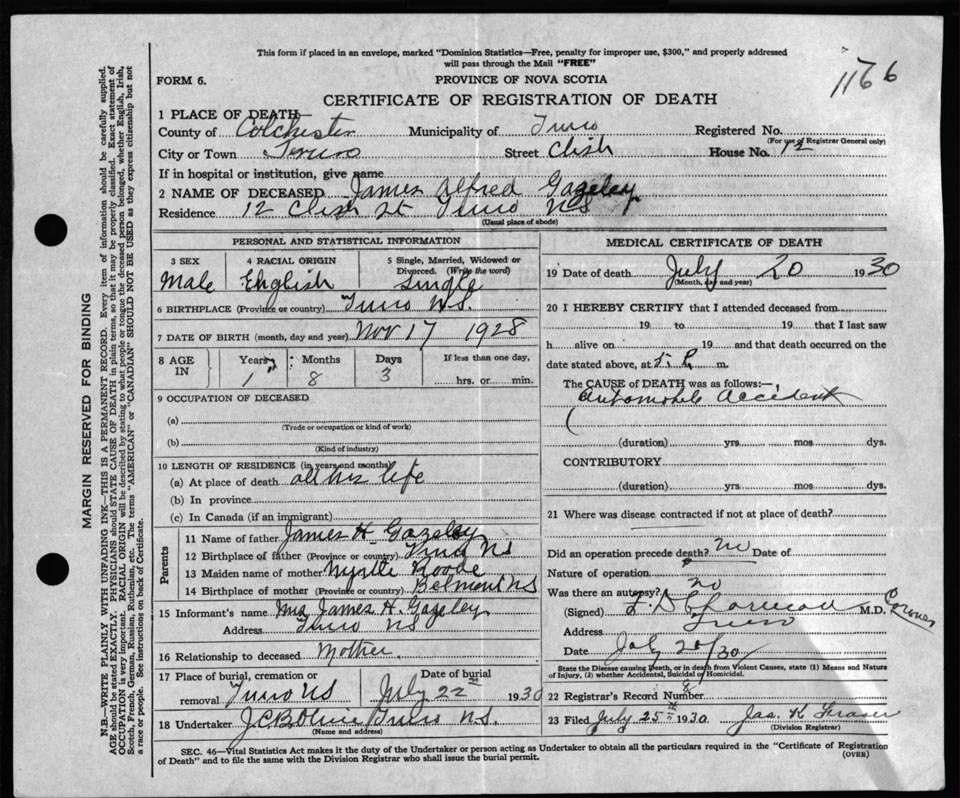 This form if placed in an envelope, marked "Dominion Statistics—Free, penalty for improper use, $300," and properly addressed
will pass through the Mail "FREE"
1176
FORM 6.
PROVINCE OF NOVA SCOTIA
CERTIFICATE OF REGISTRATION OF DEATH
1 PLACE OF DEATH
County of Colchester Municipality of Truro Registered No.
(For use of Registrar General only)
City or Town Truro Street Clish House No. 12
If in hospital or institution, give name
2 NAME OF DECEASED James Alfred Gazeley
Residence 12 Clish St Truro NS
(Usual place of abode)
PERSONAL AND STATISTICAL INFORMATION
3 SEX 4 RACIAL ORIGIN 5 Single, Married, Widowed or
Divorced. (Write the word)
Male English Single
6 BIRTHPLACE (Province or country) Truro N.S.
7 DATE OF BIRTH (month, day and year) Nov 17 1928
8 AGE IN Years Months Days If less than one day,
1 8 3 hrs. or min.
9 OCCUPATION OF DECEASED
(a)
(Trade or occupation or kind of work)
(b)
(Kind of industry)
10 LENGTH OF RESIDENCE (in years and months)
(a) At place of death all his life
(b) In province
(c) In Canada (if an immigrant)
Parents
11 Name of father James H. Gazeley
12 Birthplace of father (Province or country) Truro NS
13 Maiden name of mother Myrtle
14 Birthplace of mother (Province or country) Belmont NS
15 Informant's name Mrs James H. Gazeley
Address Truro NS
16 Relationship to deceased Mother.
17 Place of burial, cremation or Date of burial
removal Truro NS July 22 1930
18 Undertaker Truro N.S.
(Name and address)
MEDICAL CERTIFICATE OF DEATH
19 Date of death July 20 1930
(Month, day and year)
20 I HEREBY CERTIFY that I attended deceased from
19 to 19 that I last saw
h alive on 19 and that death occurred on the
date stated above, at m.
The CAUSE of DEATH was as follows:—
Automobile accident
(duration) yrs. mos. dys.
CONTRIBUTORY
(duration) yrs. mos. dys.
21 Where was disease contracted if not at place of death?
Did an operation precede death? no Date of
Nature of operation
Was there an autopsy? no
(Signed) M.D. Coroner
Address Truro
Date July 20/30
State the Disease causing Death, or in death from Violent Causes, state (1) Means and Nature
of Injury, (2) whether Accidental, Suicidal or Homicidal.
22 Registrar's Record Number
23 Filed July 25 1930 Jas. K Fraser
(Division Registrar)
SEC. 46—Vital Statistics Act makes it the duty of the Undertaker or person acting as Undertaker to obtain all the particulars required in the "Certificate of Registration
of Death" and to file the same with the Division Registrar who shall issue the burial permit.
(OVER)
MARGIN RESERVED FOR BINDING
N.B.—WRITE PLAINLY WITH UNFADING INK—THIS IS A PERMANENT RECORD. Every item of information should be carefully supplied.
AGE should be stated EXACTLY. PHYSICIANS should STATE CAUSE OF DEATH in plain terms, so that it may be properly classified. Exact statement of
OCCUPATION is very important. RACIAL ORIGIN will be described by stating to what people or tongue the deceased person belonged, whether English, Irish,
Scotch, French, German, Russian, Ruthenian, etc. The terms "AMERICAN" or "CANADIAN" SHOULD NOT BE USED as they express citizenship but not
a race or people. See instructions on back of Certificate.